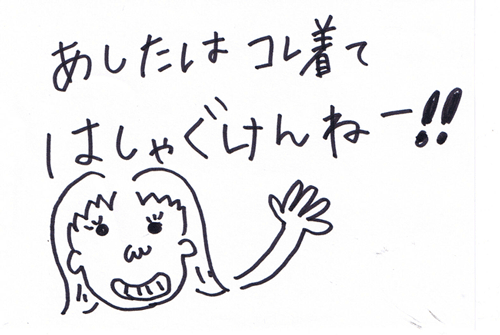 あしたは コレ着て
はしゃぐけんねー!!